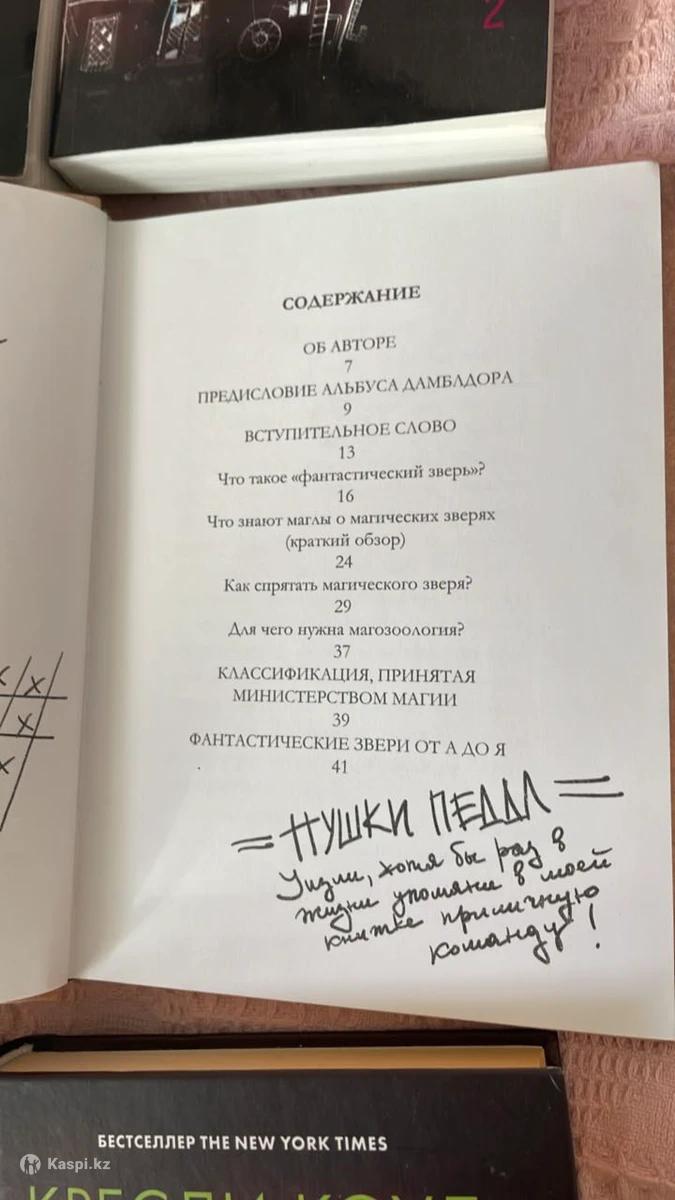 2
СОДЕРЖАНИЕ
ОБ АВТОРЕ
7
ПРЕДИСЛОВИЕ АЛЬБУСА ДАМБЛДОРА
9
ВСТУПИТЕЛЬНОЕ СЛОВО
13
Что такое «фантастический зверь»?
16
Что знают маглы о магических зверях
(краткий обзор)
24
Как спрятать магического зверя?
29
Для чего нужна магозоология?
37
КЛАССИФИКАЦИЯ, ПРИНЯТАЯ
МИНИСТЕРСТВОМ МАГИИ
39
ФАНТАСТИЧЕСКИЕ ЗВЕРИ ОТ А ДО Я
41
= ПУШКИ ПЕДДЛ =
Уизли, хотя бы раз в
жизни упомяни в моей
книжке приличную
команду!
х х
х
х
БЕСТСЕЛЛЕР THE NEW YORK TIMES
Kaspi.kz
КРЕСЛИ КОУЛ